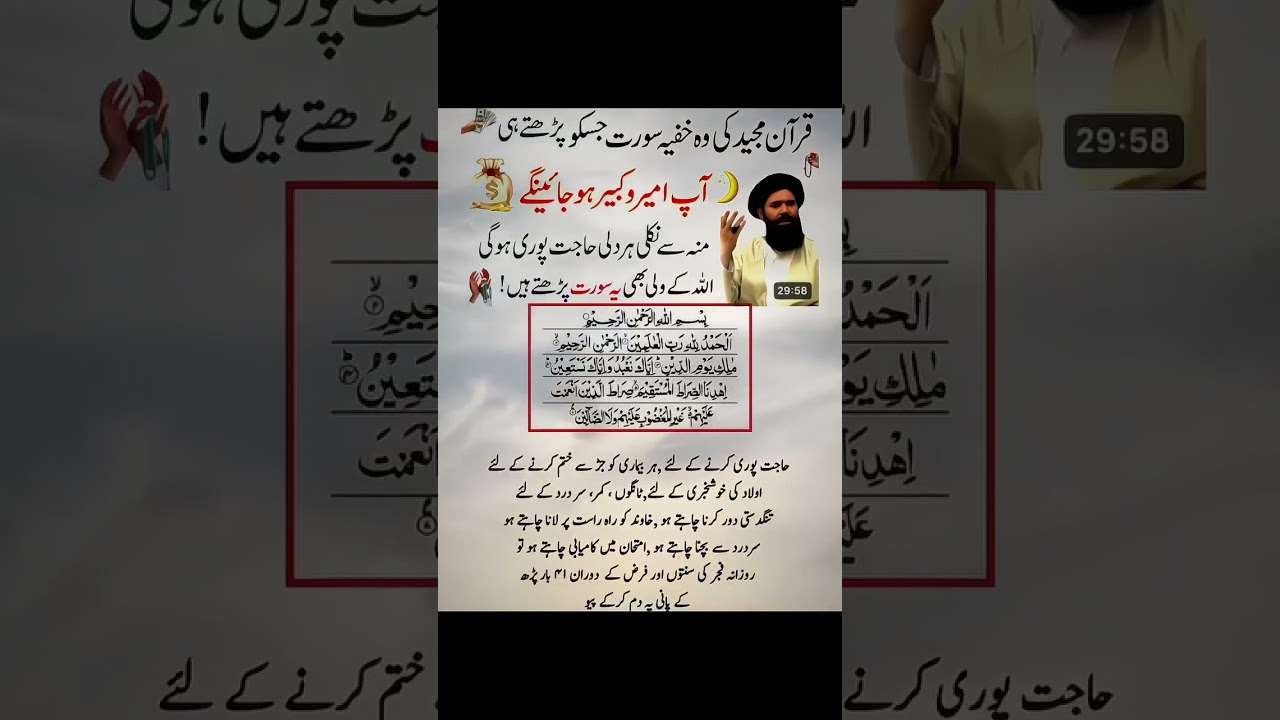 قرآن مجید کی وہ خفیہ سورت جسکو پڑھتے ہی
آپ امیر و کبیر ہو جائینگے
منہ سے نکلی ہر دلی حاجت پوری ہوگی
اللہ کے ولی بھی یہ سورت پڑھتے ہیں!
29:58
بِسْمِ اللهِ الرَّحْمٰنِ الرَّحِيْمِ
اَلْحَمْدُ لِلّٰهِ رَبِّ الْعٰلَمِيْنَ الرَّحْمٰنِ الرَّحِيْمِ
مٰلِكِ يَوْمِ الدِّيْنِ اِيَّاكَ نَعْبُدُ وَاِيَّاكَ نَسْتَعِيْنُ
اِهْدِنَا الصِّرَاطَ الْمُسْتَقِيْمَ صِرَاطَ الَّذِيْنَ اَنْعَمْتَ
عَلَيْهِمْ غَيْرِ الْمَغْضُوْبِ عَلَيْهِمْ وَلَا الضَّآلِّيْنَ
حاجت پوری کرنے کے لئے ,ہر بیماری کو جڑ سے ختم کرنے کے لئے
اولاد کی خوشخبری کے لئے,ٹانگوں ، کمر، سر درد کے لئے
تنگدستی دور کرنا چاہتے ہو ,خاوند کو راہ راست پر لانا چاہتے ہو
سر درد سے بچنا چاہتے ہو ,امتحان میں کامیابی چاہتے ہو تو
روزانہ فجر کی سنتوں اور فرض کے دوران ۴۱ بار پڑھ
کے پانی پہ دم کرکے پیو
پوری ہوگی
پڑھتے ہیں!
29:58
اَلْحَمْدُ
مٰلِكِ يَوْمِ
نَسْتَعِيْنُ
اِهْدِنَا
اَنْعَمْتَ
ختم کرنے کے لئے
حاجت پوری کرنے